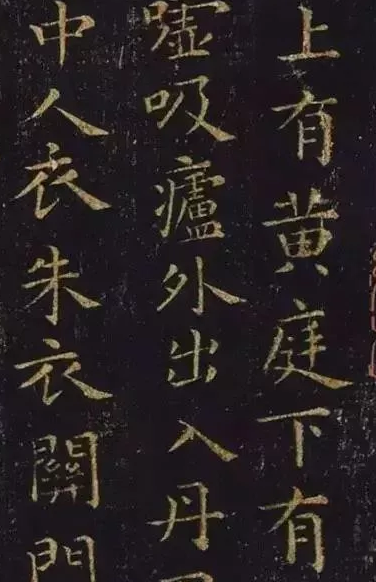 上有黄庭下有
嘘吸廬外出入丹
中人衣朱衣關門